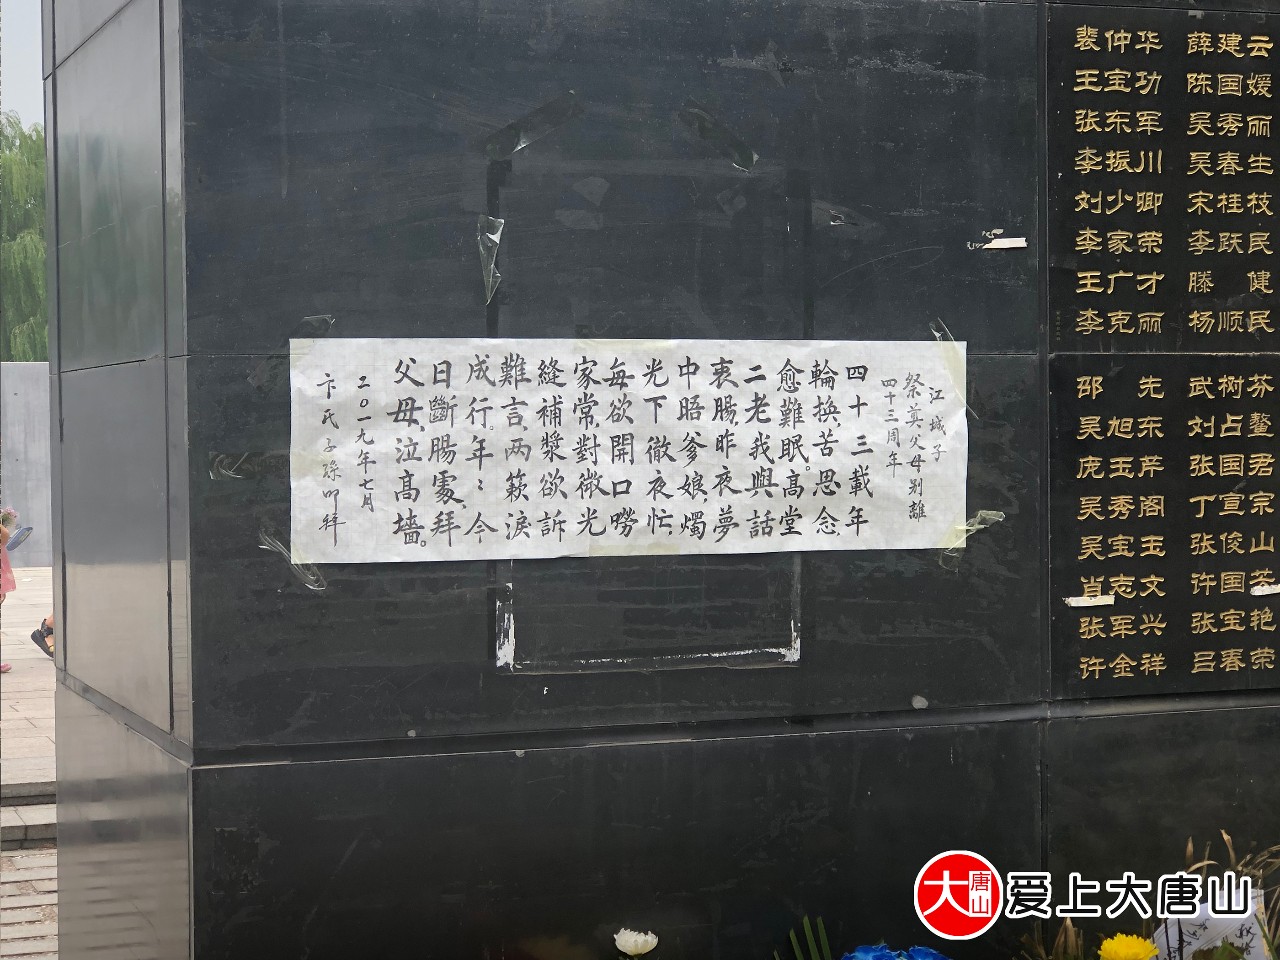 江城子
祭奠父母别離
四十三周年
四十三載年
輪換,苦思念,
愈難眠。高堂
二老我與話
衷腸,昨夜夢
中晤爹娘,燭
光下徹夜忙,
每欲開口嘮
家常,對微光
縫補漿欲訴
難言,两簌淚
成行。年:今
日斷腸處,拜
父母,泣高墻。
二0一九年七月
卞氏子孫叩拜
裴仲华 薛建云
王宝功 陈国媛
张东军 吴秀丽
李振川 吴春生
刘少卿 宋桂枝
李家荣 李跃民
王广才 滕 健
李克丽 杨顺民
邵 先 武树芬
吴旭东 刘占鳌
庞玉芹 张国君
吴秀阁 丁宣宗
吴宝玉 张俊山
肖志文 许国芳
张军兴 张宝艳
许金祥 吕春荣
大唐山 爱上大唐山